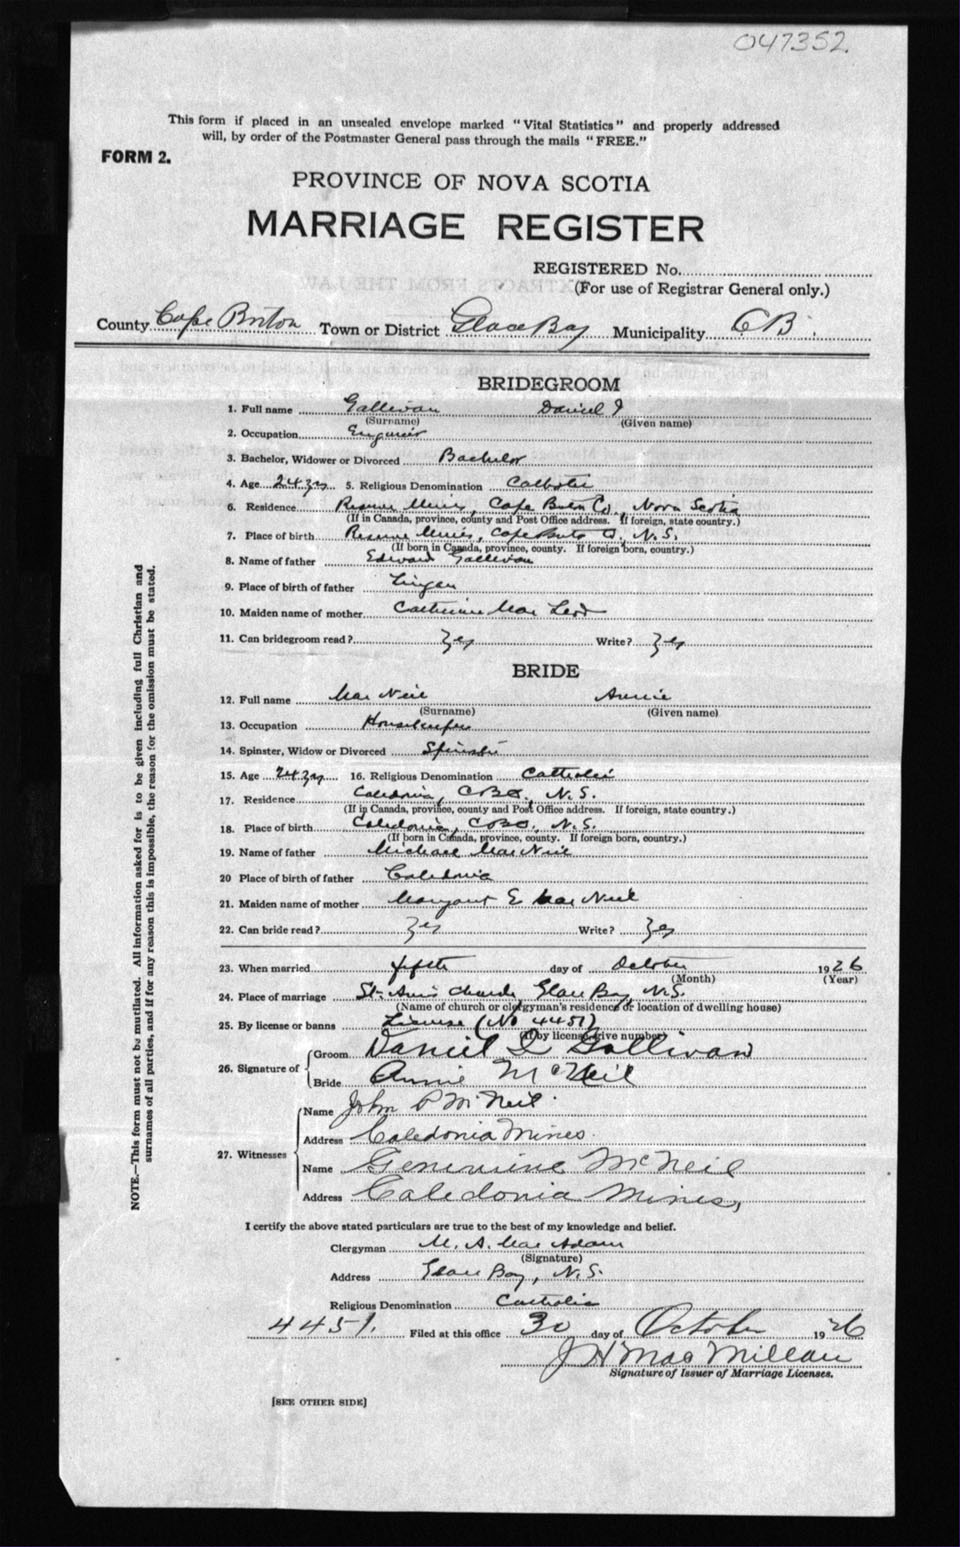 047352
This form if placed in an unsealed envelope marked "Vital Statistics" and properly addressed
will, by order of the Postmaster General pass through the mails "FREE."
FORM 2.
PROVINCE OF NOVA SCOTIA
MARRIAGE REGISTER
REGISTERED No.
(For use of Registrar General only.)
County Cape Breton Town or District Glace Bay Municipality C B.
BRIDEGROOM
1. Full name Gallivan Daniel J
(Surname) (Given name)
2. Occupation Engineer
3. Bachelor, Widower or Divorced Bachelor
4. Age 24 yrs 5. Religious Denomination Catholic
6. Residence Reserve Mines, Cape Breton Co, Nova Scotia
(If in Canada, province, county and Post Office address. If foreign, state country.)
7. Place of birth Reserve Mines, Cape Breton Co, N.S.
(If born in Canada, province, county. If foreign born, country.)
8. Name of father Edward Gallivan
9. Place of birth of father Lingan
10. Maiden name of mother Catherine Mac Leod
11. Can bridegroom read? Yes Write? Yes
BRIDE
12. Full name Mac Neil Annie
(Surname) (Given name)
13. Occupation Housekeeper
14. Spinster, Widow or Divorced Spinster
15. Age 24 yrs 16. Religious Denomination Catholic
17. Residence Caledonia, CBCo, N.S.
(If in Canada, province, county and Post Office address. If foreign, state country.)
18. Place of birth Caledonia, CBCo, N.S.
(If born in Canada, province, county. If foreign born, country.)
19. Name of father Michael Mac Neil
20 Place of birth of father Caledonia
21. Maiden name of mother Margaret E Mac Neil
22. Can bride read? Yes Write? Yes
23. When married fifth day of October 1926
(Month) (Year)
24. Place of marriage St. Ann's Church, Glace Bay, N.S.
(Name of church or clergyman's residence or location of dwelling house)
25. By license or banns License (No 4451)
(If by license, give number)
26. Signature of Groom Daniel J Gallivan
Bride Annie McNeil
27. Witnesses Name John P McNeil
Address Caledonia Mines
Name Genevieve McNeil
Address Caledonia Mines,
I certify the above stated particulars are true to the best of my knowledge and belief.
Clergyman M. A. Mac Adam
(Signature)
Address Glace Bay, N.S.
Religious Denomination Catholic
4451. Filed at this office 30 day of October 1926
J H Mac Millan
Signature of Issuer of Marriage Licenses.
[SEE OTHER SIDE]
NOTE.—This form must not be mutilated. All information asked for is to be given including full Christian and
surnames of all parties, and if for any reason this is impossible, the reason for the omission must be stated.